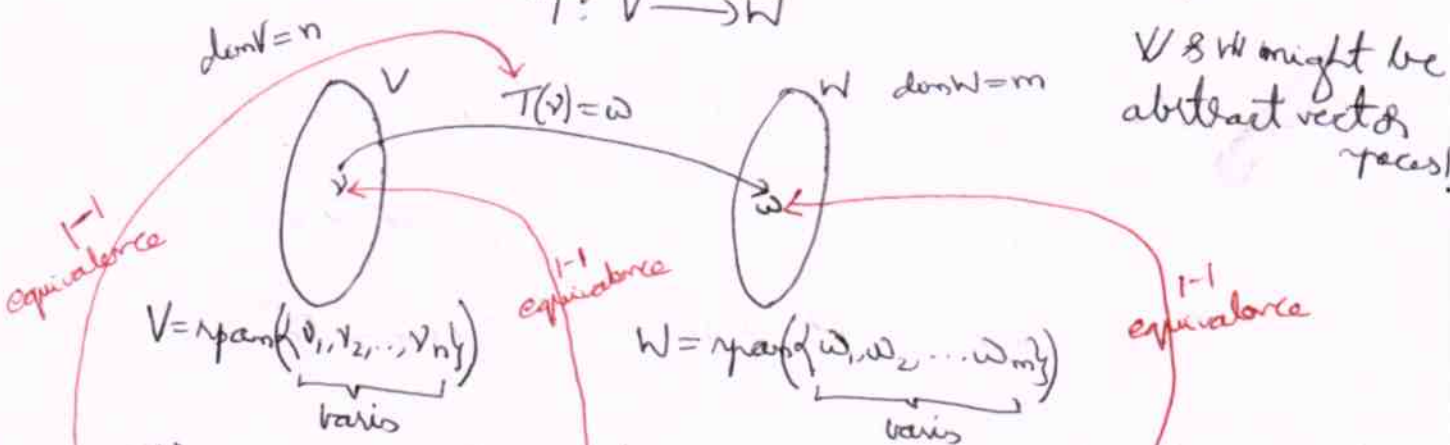 T: V → W
dimV = n
V
T(v) = ω
W dimW = m
V & W might be
abstract vector
spaces!
v
ω
1-1
equivalence
1-1
equivalence
1-1
equivalence
V = span({v₁, v₂, .., vₙ})
basis
W = span({ω₁, ω₂, ... ωₘ})
basis